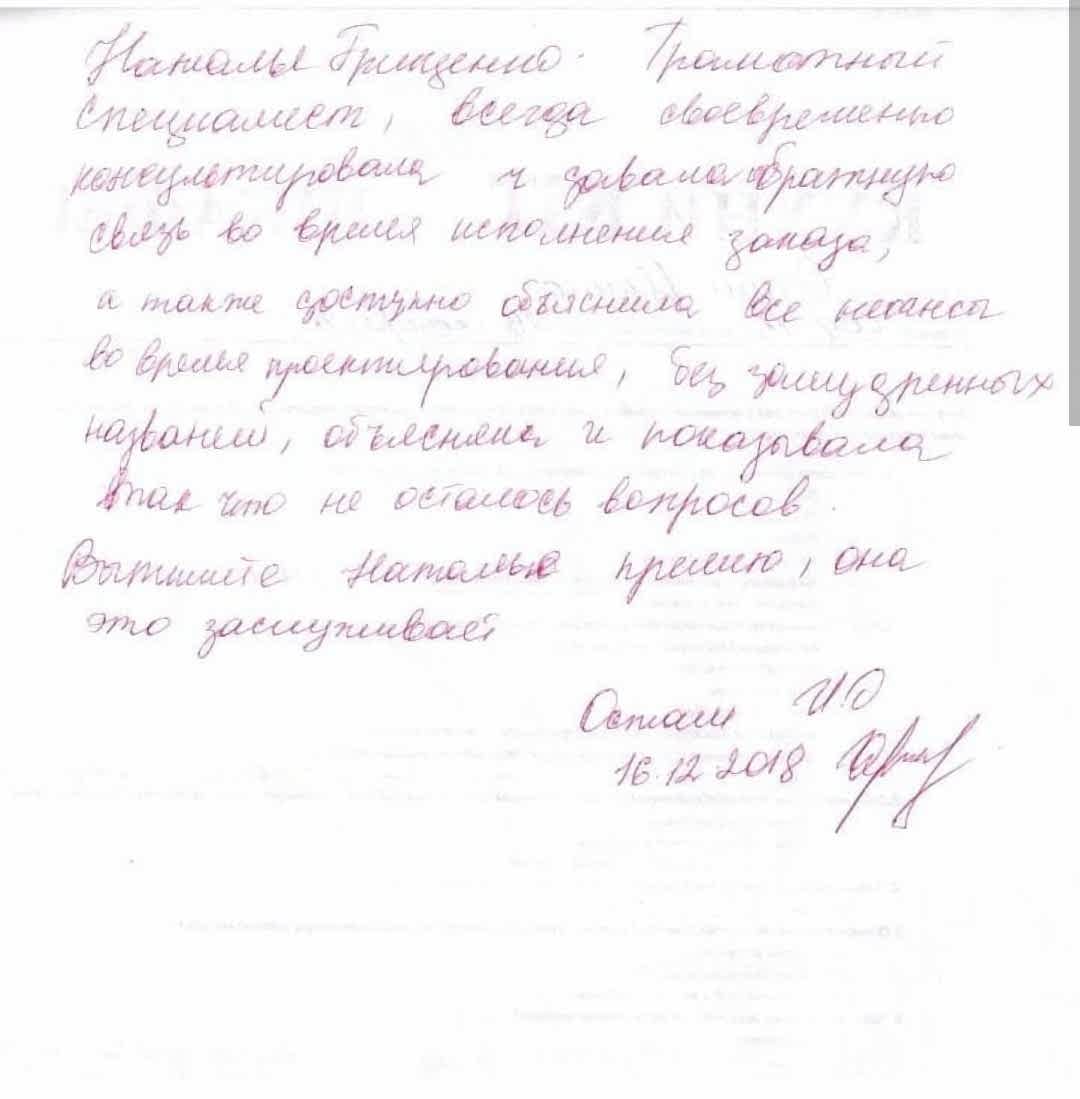 Наталья Грищенко. Грамотный
специалист, всегда своевременно
консультировала и давала обратную
связь во время исполнения заказа,
а также доступно объяснила все нюансы
во время проектирования, без замудренных
названий, объясняла и показывала
так что не осталось вопросов.
Выпишите Наталье премию, она
это заслуживает
И.О
16.12.2018